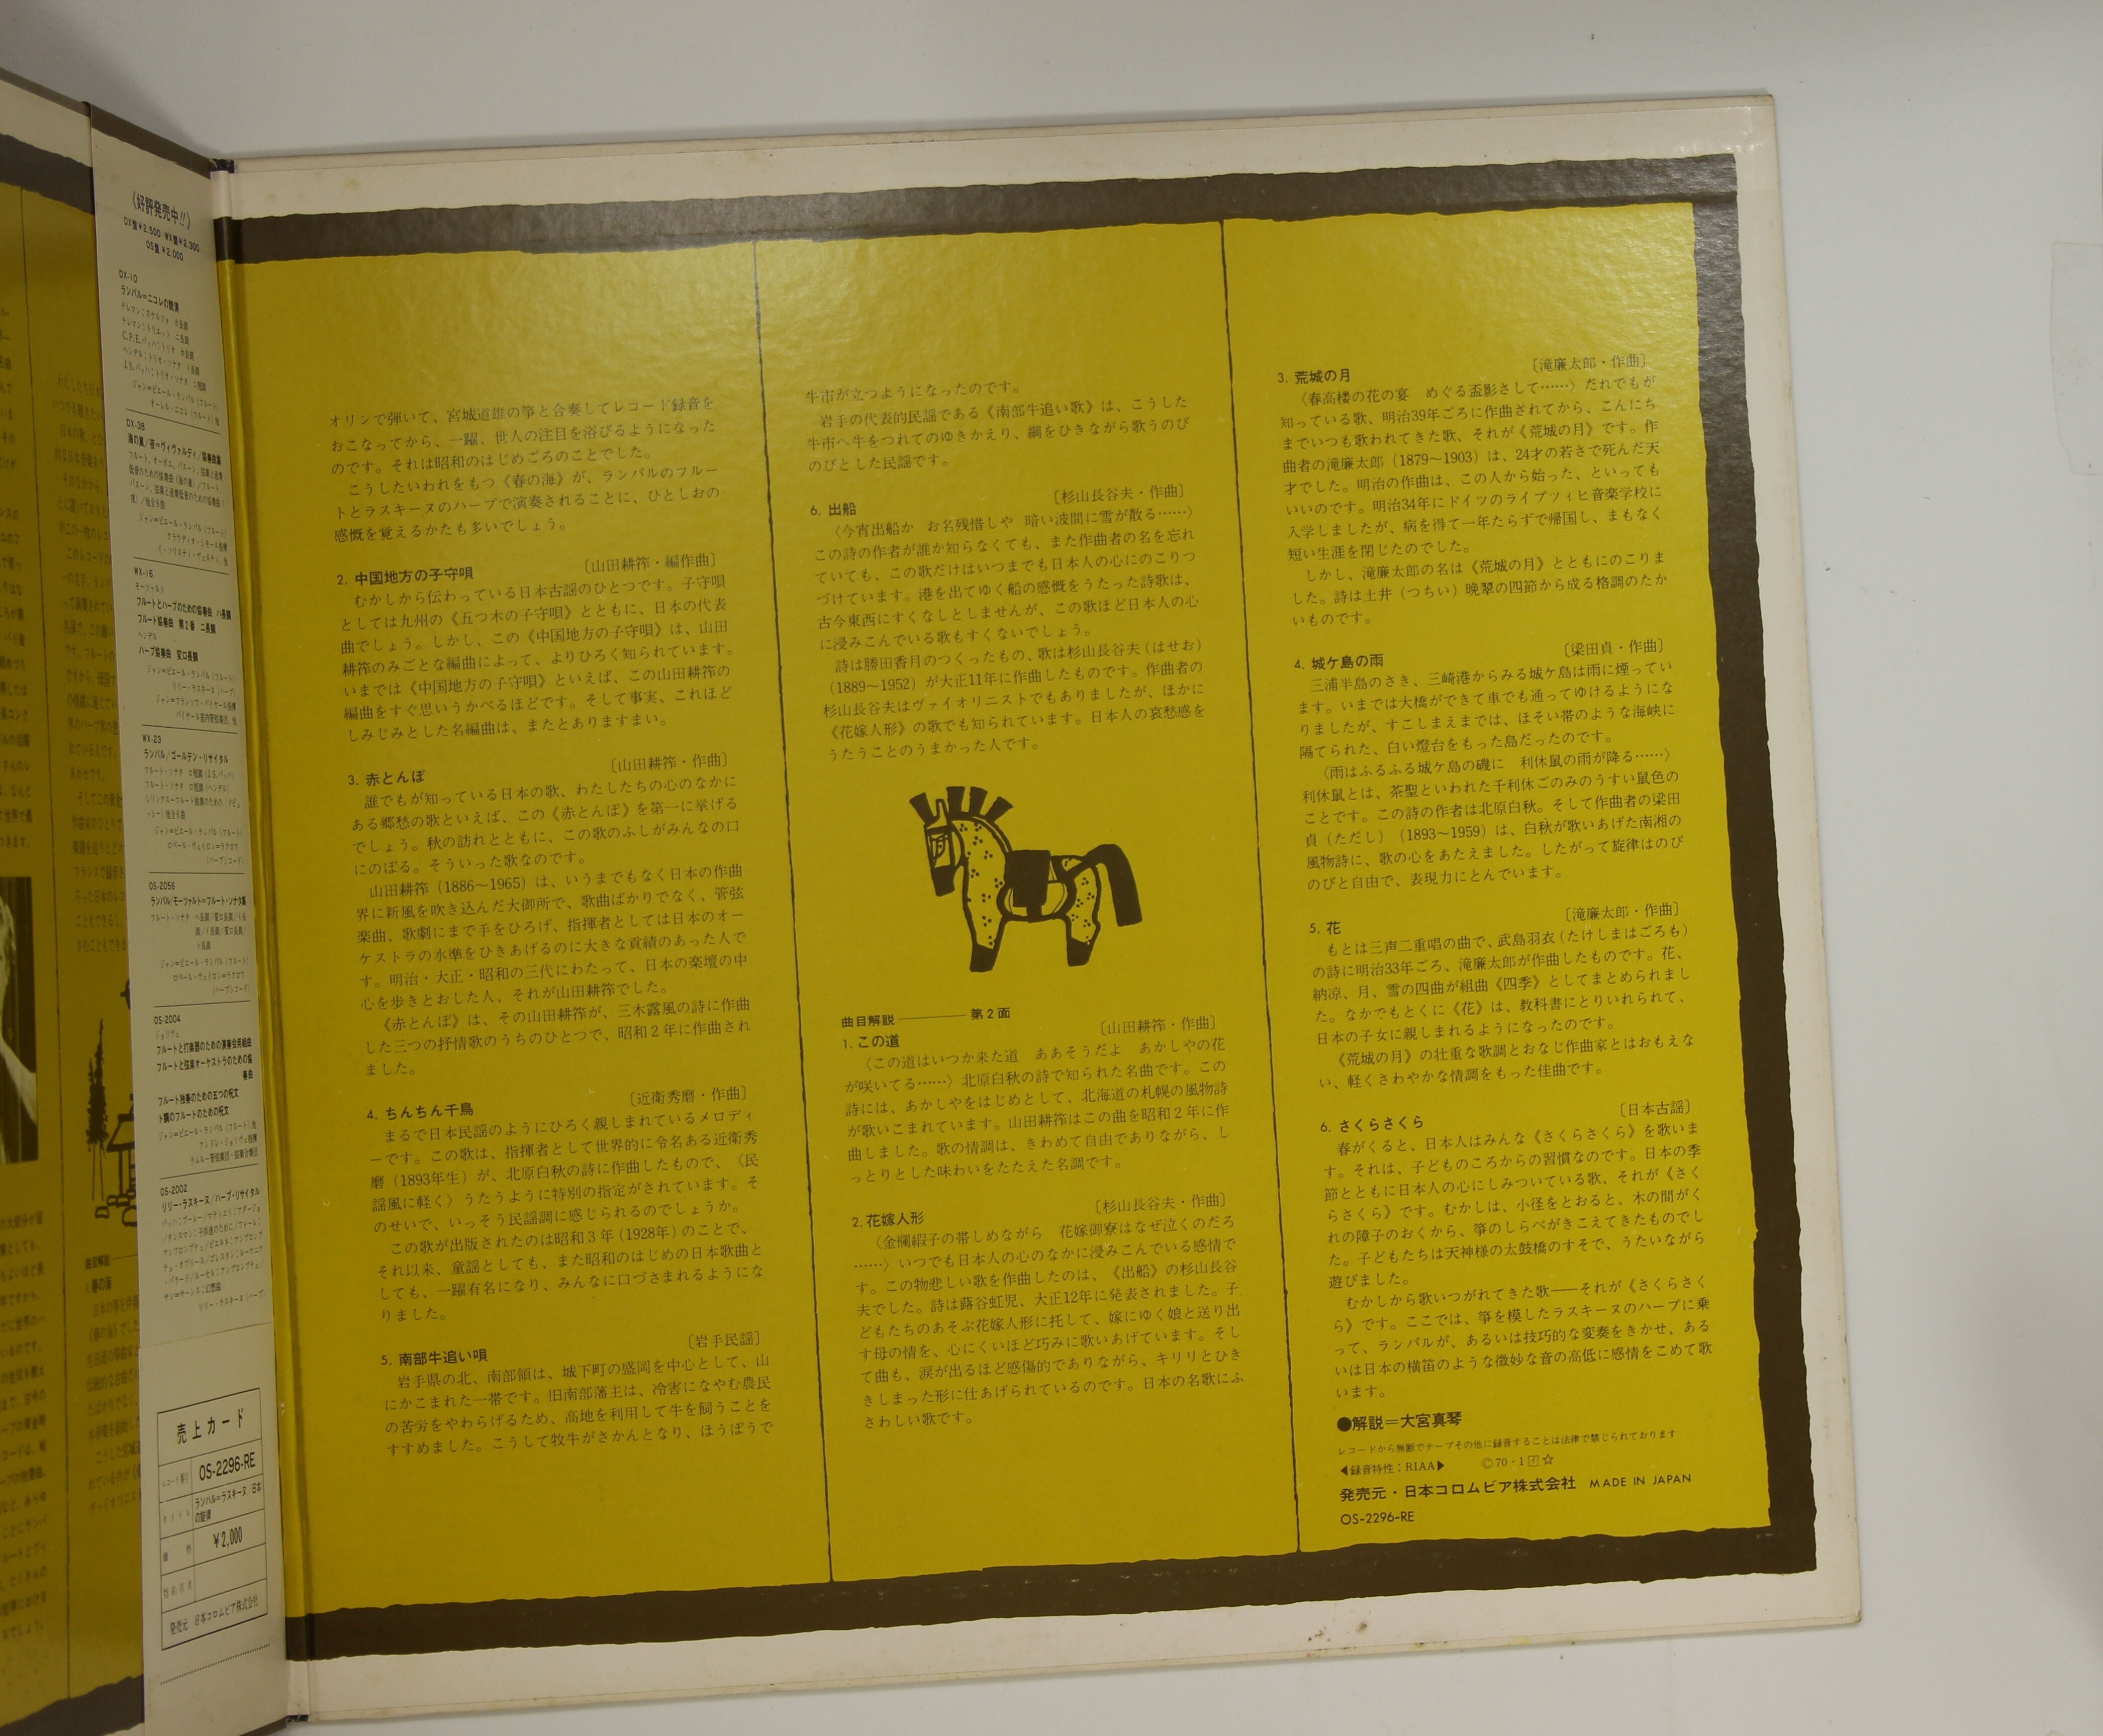 《好評発売中!!》
DX盤¥2,500 WX盤¥2,300
OS盤 ¥2,000
DX-10
ランパル=ニコレの競演
C.P.E.バッハ:トリオ ホ長調
ジャン=ピエール・ランパル(フルート)
オーレル・ニコレ(フルート)他
DX-38
海の嵐/夜=ヴィヴァルディ/協奏曲集
ジャン=ピエール・ランパル(フルート)
クラウディオ・シモーネ指揮
イ・ソリスティ・ヴェネティ、他
WX-16
モーツァルト
フルートとハープのための協奏曲 ハ長調
フルート協奏曲 第2番 ニ長調
ヘンデル
ハープ協奏曲 変ロ長調
ジャン=ピエール・ランパル(フルート)
リリー・ラスキーヌ(ハープ)
ジャン=フランソワ・パイヤール指揮
パイヤール室内管弦楽団、他
WX-23
ランパル/ゴールデン・リサイタル
フルート・ソナタ ロ短調(J.S.バッハ)
フルート・ソナタ ロ短調(ヘンデル)
シリンクス=フルート独奏のための(ドビュ
ッシー)他全6曲
ジャン=ピエール・ランパル(フルート)
ロベール・ヴェイロン=ラクロワ
(ハープシコード)
OS-2056
ランパル/モーツァルト=フルート・ソナタ集
ジャン=ピエール・ランパル(フルート)
ロベール・ヴェイロン=ラクロワ
(ハープシコード)
OS-2004
ジョリヴェ
フルートと打楽器のための演奏会用組曲
フルートと弦楽オーケストラのための協
奏曲
フルート独奏のための五つの呪文
ト調のフルートのための呪文
ジャン=ピエール・ランパル(フルート)他
アンドレ・ジョリヴェ指揮
ラムルー管弦楽団・弦楽合奏団
OS-2002
リリー・ラスキーヌ/ハープ・リサイタル
サン=サーンス:幻想曲
リリー・ラスキーヌ(ハープ)
売上カード
レコード番号 OS-2296-RE
タイトル ランパル=ラスキーヌ 日本
の旋律
価 格 ¥2,000
発売元 日本コロムビア株式会社
オリンで弾いて、宮城道雄の箏と合奏してレコード録音を
おこなってから、一躍、世人の注目を浴びるようになった
のです。それは昭和のはじめごろのことでした。
こうしたいわれをもつ《春の海》が、ランパルのフルー
トとラスキーヌのハープで演奏されることに、ひとしおの
感慨を覚えるかたも多いでしょう。
2. 中国地方の子守唄 〔山田耕筰・編作曲〕
むかしから伝わっている日本古謡のひとつです。子守唄
としては九州の《五つ木の子守唄》とともに、日本の代表
曲でしょう。しかし、この《中国地方の子守唄》は、山田
耕筰のみごとな編曲によって、よりひろく知られています。
いまでは《中国地方の子守唄》といえば、この山田耕筰の
編曲をすぐ思いうかべるほどです。そして事実、これほど
しみじみとした名編曲は、またとありますまい。
3. 赤とんぼ 〔山田耕筰・作曲〕
誰でもが知っている日本の歌、わたしたちの心のなかに
ある郷愁の歌といえば、この《赤とんぼ》を第一に挙げる
でしょう。秋の訪れとともに、この歌のふしがみんなの口
にのぼる。そういった歌なのです。
山田耕筰(1886〜1965)は、いうまでもなく日本の作曲
界に新風を吹き込んだ大御所で、歌曲ばかりでなく、管弦
楽曲、歌劇にまで手をひろげ、指揮者としては日本のオー
ケストラの水準をひきあげるのに大きな貢績のあった人で
す。明治・大正・昭和の三代にわたって、日本の楽壇の中
心を歩きとおした人、それが山田耕筰でした。
《赤とんぼ》は、その山田耕筰が、三木露風の詩に作曲
した三つの抒情歌のうちのひとつで、昭和2年に作曲され
ました。
4. ちんちん千鳥 〔近衛秀磨・作曲〕
まるで日本民謡のようにひろく親しまれているメロディ
ーです。この歌は、指揮者として世界的に令名ある近衛秀
磨(1893年生)が、北原白秋の詩に作曲したもので、〈民
謡風に軽く〉うたうように特別の指定がされています。そ
のせいで、いっそう民謡調に感じられるのでしょうか。
この歌が出版されたのは昭和3年(1928年)のことで、
それ以来、童謡としても、また昭和のはじめの日本歌曲と
しても、一躍有名になり、みんなに口づさまれるようにな
りました。
5. 南部牛追い唄 〔岩手民謡〕
岩手県の北、南部領は、城下町の盛岡を中心として、山
にかこまれた一帯です。旧南部藩主は、冷害になやむ農民
の苦労をやわらげるため、高地を利用して牛を飼うことを
すすめました。こうして牧牛がさかんとなり、ほうぼうで
牛市が立つようになったのです。
岩手の代表的民謡である《南部牛追い歌》は、こうした
牛市へ牛をつれてのゆきかえり、綱をひきながら歌うのび
のびとした民謡です。
6. 出船 〔杉山長谷夫・作曲〕
〈今宵出船か お名残惜しや 暗い波間に雪が散る……〉
この詩の作者が誰か知らなくても、また作曲者の名を忘れ
ていても、この歌だけはいつまでも日本人の心にのこりつ
づけています。港を出てゆく船の感慨をうたった詩歌は、
古今東西にすくなしとしませんが、この歌ほど日本人の心
に浸みこんでいる歌もすくないでしょう。
詩は勝田香月のつくったもの、歌は杉山長谷夫(はせお)
(1889〜1952)が大正11年に作曲したものです。作曲者の
杉山長谷夫はヴァイオリニストでもありましたが、ほかに
《花嫁人形》の歌でも知られています。日本人の哀愁感を
うたうことのうまかった人です。
曲目解説 ―――― 第2面
1. この道 〔山田耕筰・作曲〕
〈この道はいつか来た道 ああそうだよ あかしやの花
が咲いてる……〉北原白秋の詩で知られた名曲です。この
詩には、あかしやをはじめとして、北海道の札幌の風物詩
が歌いこまれています。山田耕筰はこの曲を昭和2年に作
曲しました。歌の情調は、きわめて自由でありながら、し
っとりとした味わいをたたえた名調です。
2. 花嫁人形 〔杉山長谷夫・作曲〕
〈金襴緞子の帯しめながら 花嫁御寮はなぜ泣くのだろ
……〉いつでも日本人の心のなかに浸みこんでいる感情で
す。この物悲しい歌を作曲したのは、《出船》の杉山長谷
夫でした。詩は蕗谷虹児、大正12年に発表されました。子
どもたちのあそぶ花嫁人形に托して、嫁にゆく娘と送り出
す母の情を、心にくいほど巧みに歌いあげています。そし
て曲も、涙が出るほど感傷的でありながら、キリリとひき
きしまった形に仕あげられているのです。日本の名歌にふ
さわしい歌です。
3. 荒城の月 〔滝廉太郎・作曲〕
〈春高楼の花の宴 めぐる盃影さして……〉だれでもが
知っている歌、明治39年ごろに作曲されてから、こんにち
までいつも歌われてきた歌、それが《荒城の月》です。作
曲者の滝廉太郎(1879〜1903)は、24才の若さで死んだ天
才でした。明治の作曲は、この人から始った、といっても
いいのです。明治34年にドイツのライプツィヒ音楽学校に
入学しましたが、病を得て一年たらずで帰国し、まもなく
短い生涯を閉じたのでした。
しかし、滝廉太郎の名は《荒城の月》とともにのこりま
した。詩は土井(つちい)晩翠の四節から成る格調のたか
いものです。
4. 城ケ島の雨 〔梁田貞・作曲〕
三浦半島のさき、三崎港からみる城ケ島は雨に煙ってい
ます。いまでは大橋ができて車でも通ってゆけるようにな
りましたが、すこしまえまでは、ほそい帯のような海峡に
隔てられた、白い燈台をもった島だったのです。
〈雨はふるふる城ケ島の磯に 利休鼠の雨が降る……〉
利休鼠とは、茶聖といわれた千利休ごのみのうすい鼠色の
ことです。この詩の作者は北原白秋。そして作曲者の梁田
貞(ただし)(1893〜1959)は、白秋が歌いあげた南湘の
風物詩に、歌の心をあたえました。したがって旋律はのび
のびと自由で、表現力にとんでいます。
5. 花 〔滝廉太郎・作曲〕
もとは三声二重唱の曲で、武島羽衣(たけしまはごろも)
の詩に明治33年ごろ、滝廉太郎が作曲したものです。花、
納凉、月、雪の四曲が組曲《四季》としてまとめられまし
た。なかでもとくに《花》は、教科書にとりいれられて、
日本の子女に親しまれるようになったのです。
《荒城の月》の壮重な歌調とおなじ作曲家とはおもえな
い、軽くさわやかな情調をもった佳曲です。
6. さくらさくら 〔日本古謡〕
春がくると、日本人はみんな《さくらさくら》を歌いま
す。それは、子どものころからの習慣なのです。日本の季
節とともに日本人の心にしみついている歌、それが《さく
らさくら》です。むかしは、小径をとおると、木の間がく
れの障子のおくから、箏のしらべがきこえてきたものでし
た。子どもたちは天神様の太鼓橋のすそで、うたいながら
遊びました。
むかしから歌いつがれてきた歌――それが《さくらさく
ら》です。ここでは、箏を模したラスキーヌのハープに乗
って、ランパルが、あるいは技巧的な変奏をきかせ、ある
いは日本の横笛のような微妙な音の高低に感情をこめて歌
います。
●解説=大宮真琴
レコードから無断でテープその他に録音することは法律で禁じられております
◀録音特性:RIAA▶ ©70・1 ☆
発売元・日本コロムビア株式会社 MADE IN JAPAN
OS-2296-RE